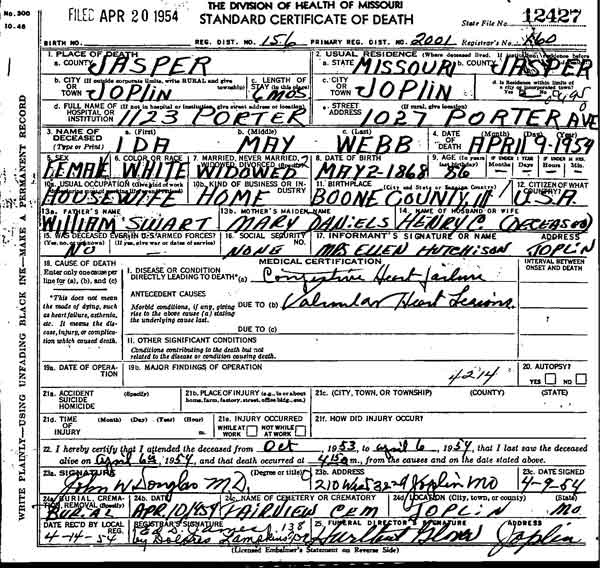 No. 300
10-48
FILED APR 20 1954
THE DIVISION OF HEALTH OF MISSOURI
STANDARD CERTIFICATE OF DEATH
State File No. 12427
BIRTH NO.
REG. DIST. NO. 156
PRIMARY REG. DIST. NO. 2001
Registrar's No.
WRITE PLAINLY—USING UNFADING BLACK INK—MAKE A PERMANENT RECORD
1. PLACE OF DEATH
a. COUNTY JASPER
2. USUAL RESIDENCE (Where deceased lived.
a. STATE MISSOURI JASPER
b. CITY (If outside corporate limits, write RURAL and give township)
OR TOWN JOPLIN
c. LENGTH OF STAY (in this place) 6 MOS
c. CITY OR TOWN JOPLIN
d. Is Residence within limits of a city or incorporated town?
d. FULL NAME OF HOSPITAL OR INSTITUTION (If not in hospital or institution, give street address or location)
1123 PORTER
e. STREET ADDRESS (If rural, give location)
1027 PORTER AVE
3. NAME OF DECEASED (Type or Print)
a. (First) IDA
b. (Middle) MAY
c. (Last) WEBB
4. DATE OF DEATH (Month) (Day) (Year) APRIL 9-1954
5. SEX FEMALE
6. COLOR OR RACE WHITE
7. MARRIED, NEVER MARRIED, WIDOWED, DIVORCED WIDOWED
8. DATE OF BIRTH MAY 2-1868
9. AGE (In years
10a. USUAL OCCUPATION HOUSEWIFE
10b. KIND OF BUSINESS OR INDUSTRY HOME
11. BIRTHPLACE (City and State or Foreign Country) BOONE COUNTY, Ill
12. CITIZEN OF WHAT COUNTRY? U.S.A
13a. FATHER'S NAME WILLIAM SWART
13b. MOTHER'S MAIDEN NAME MARY DANIELS
14. NAME OF HUSBAND OR WIFE HENRY (DECEASED)
15. WAS DECEASED EVER IN U.S. ARMED FORCES?
(Yes, no, or unknown) (If yes, give war or dates of service)
NO
16. SOCIAL SECURITY NO. NONE
17. INFORMANT'S SIGNATURE OR NAME ADDRESS
MRS ELLEN HUTCHISON JOPLIN
18. CAUSE OF DEATH
Enter only one cause per line for (a), (b), and (c)
*This does not mean the mode of dying, such as heart failure, asthenia, etc. It means the disease, injury, or complication which caused death.
MEDICAL CERTIFICATION
INTERVAL BETWEEN ONSET AND DEATH
I. DISEASE OR CONDITION DIRECTLY LEADING TO DEATH* (a) Congestive Heart Failure
ANTECEDENT CAUSES
Morbid conditions, if any, giving rise to the above cause (a) stating the underlying cause last.
DUE TO (b) Valvular Heart Lesions
DUE TO (c)
II. OTHER SIGNIFICANT CONDITIONS
Conditions contributing to the death but not related to the disease or condition causing death.
19a. DATE OF OPERATION
19b. MAJOR FINDINGS OF OPERATION
4214
20. AUTOPSY?
YES NO
21a. ACCIDENT SUICIDE HOMICIDE (Specify)
21b. PLACE OF INJURY (e.g., in or about home, farm, factory, street, office bldg., etc.)
21c. (CITY, TOWN, OR TOWNSHIP) (COUNTY) (STATE)
21d. TIME OF INJURY (Month) (Day) (Year) (Hour)
21e. INJURY OCCURRED
WHILE AT WORK NOT WHILE AT WORK
21f. HOW DID INJURY OCCUR?
22. I hereby certify that I attended the deceased from Oct 1953, to April 6, 1954, that I last saw the deceased
alive on April 6, 1954, and that death occurred at m., from the causes and on the date stated above.
23a. SIGNATURE (Degree or title)
John W Douglas M.D.
23b. ADDRESS 210 West 32 Joplin Mo
23c. DATE SIGNED 4-9-54
24a. BURIAL, CREMATION, REMOVAL (Specify) BURIAL
24b. DATE APR. 10 1954
24c. NAME OF CEMETERY OR CREMATORY FAIRVIEW CEM
24d. LOCATION (City, town, or county) (State) JOPLIN MO.
DATE REC'D BY LOCAL REG. 4-14-54
REGISTRAR'S SIGNATURE Ed D. James 138
by Dolores
25. FUNERAL DIRECTOR'S SIGNATURE ADDRESS
Hurlbut Glover Joplin
(Licensed Embalmer's Statement on Reverse Side)